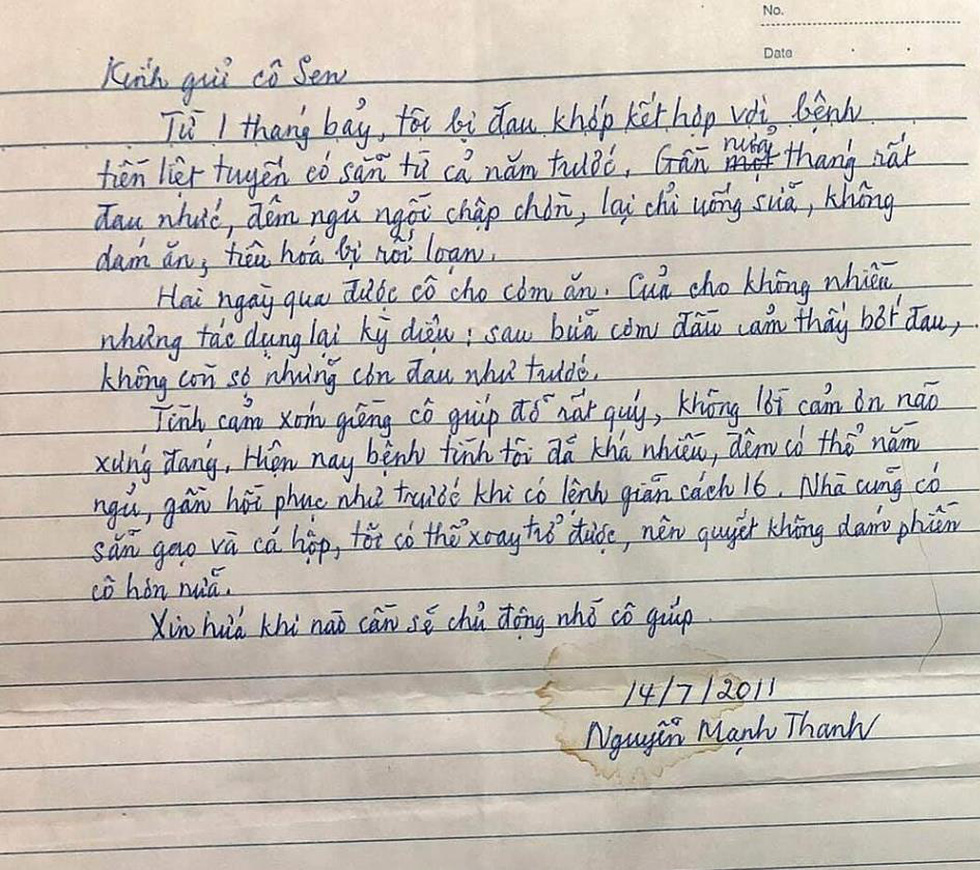 No.
Date
Kính gửi cô Sen
Từ 1 tháng bảy, tôi bị đau khớp kết hợp với bệnh
tiền liệt tuyến có sẵn từ cả năm trước. Gần một nửa tháng rất
đau nhức, đêm ngủ ngồi chập chờn, lại chỉ uống sữa, không
dám ăn, tiêu hoá bị rối loạn.
Hai ngày qua được cô cho cơm ăn. Của cho không nhiều
nhưng tác dụng lại kỳ diệu: sau bữa cơm đầu cảm thấy bớt đau,
không còn sợ những cơn đau như trước.
Tình cảm xóm giềng cô giúp đỡ rất quý, không lời cảm ơn nào
xứng đáng. Hiện nay bệnh tình tôi đã khá nhiều, đêm có thể nằm
ngủ, gần hồi phục như trước khi có lệnh giãn cách 16. Nhà cũng có
sẵn gạo và cá hộp, tôi có thể xoay trở được, nên quyết không dám phiền
cô hơn nữa.
Xin hứa khi nào cần sẽ chủ động nhờ cô giúp.
14/7/2011
Nguyễn Mạnh Thanh